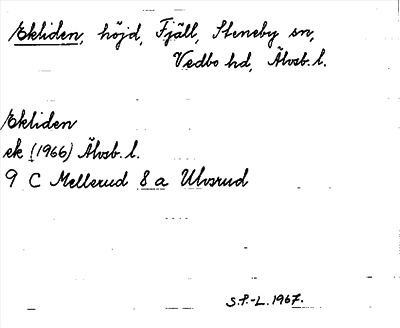 Ekliden, höjd, Fjäll, Steneby sn,
Vedbo hd, Älvsb. l.
Ekliden
ek (1966) Älvsb. l.
9 C Mellerud 8 a Ulvsrud
S.F.-L. 1967.